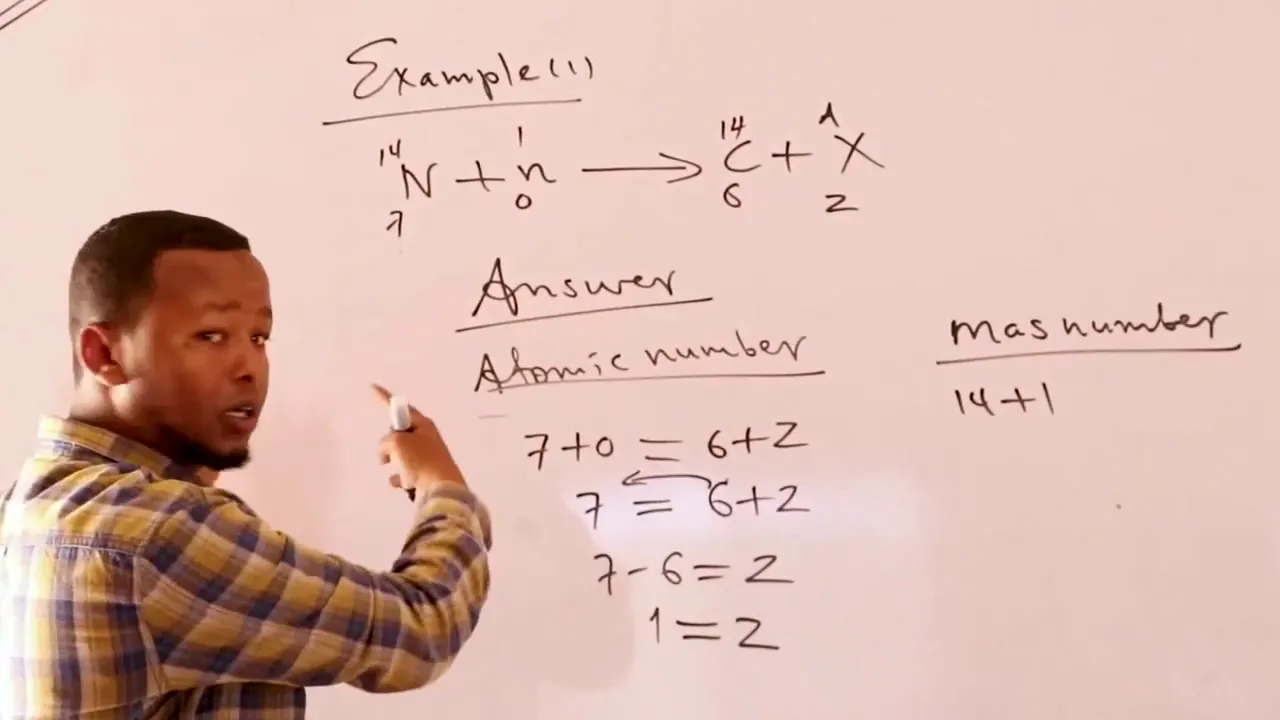 Example (1)
14 1 14 A
N + n → C + X
7 0 6 Z
Answer
Atomic number
7+0 = 6+Z
7 = 6+Z
7-6 = Z
1 = Z
mas number
14+1